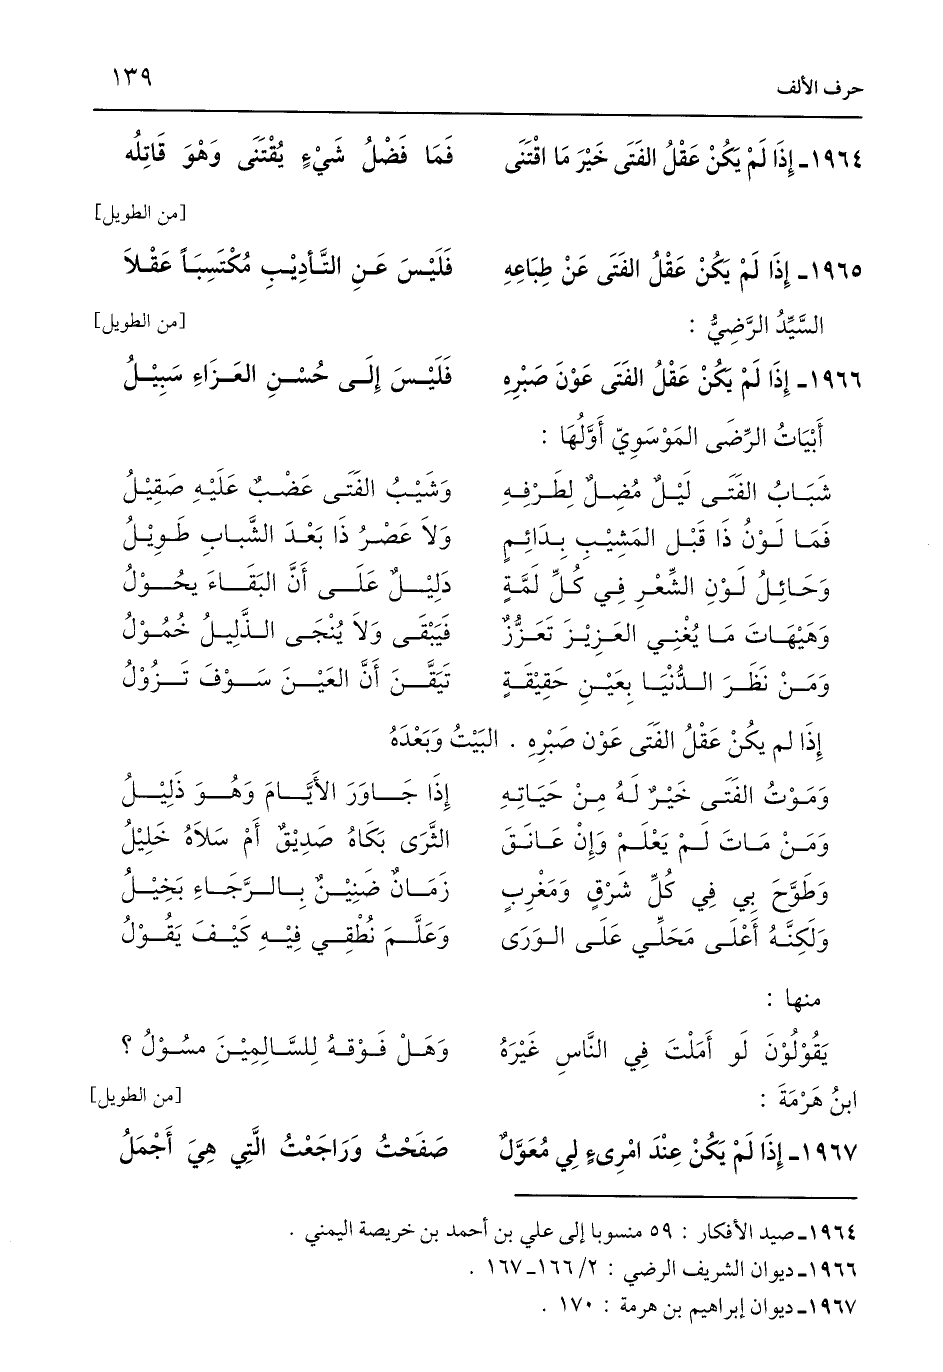 حرف الألف ١٣٩
١٩٦٤ـ إِذَا لَمْ يَكُنْ عَقْلُ الفَتَى خَيْرَ مَا اقْتَنَى فَمَا فَضْلُ شَيْءٍ يُقْتَنَى وَهْوَ قَاتِلُه
[من الطويل]
١٩٦٥ـ إِذَا لَمْ يَكُنْ عَقْلُ الفَتَى عَنْ طِبَاعِهِ فَلَيْسَ عَنِ التَّأدِيْبِ مُكْتَسِبَاً عَقْلاَ
السَّيِّدُ الرَّضِيُّ : [من الطويل]
١٩٦٦ـ إِذَا لَمْ يَكُنْ عَقْلُ الفَتَى عَوْنَ صَبْرِهِ فَلَيْسَ إِلَى حُسْنِ العَزَاءِ سَبِيْلُ
أَبْيَاتُ الرِّضَى المَوْسَوِيِّ أَوَّلُهَا :
شَبَابُ الفَتَى لَيْلٌ مُضِلٌّ لِطَرْفِهِ وَشَيْبُ الفَتَى عَضْبٌ عَلَيْهِ صَقِيْلُ
فَمَا لَوْنُ ذَا قَبْلِ المَشِيْبِ بِدَائِمٍ وَلاَ عَصْرُ ذَا بَعْدَ الشَّبَابِ طَوِيْلُ
وَحَائِلُ لَوْنِ الشَّعْرِ فِي كُلِّ لِمَّةٍ دَلِيْلٌ عَلَى أَنَّ البَقَاءَ يَحُوْلُ
وَهَيْهَاتَ مَا يُغْنِي العَزِيْزَ تَعَزُّزٌ فَيَبْقَى وَلاَ يُنْجَى الذَّلِيْلَ خُمُوْلُ
وَمَنْ نَظَرَ الدُّنْيَا بِعَيْنِ حَقِيْقَةٍ تَيَقَّنَ أَنَّ العَيْنَ سَوْفَ تَزُوْلُ
إِذَا لم يَكُنْ عَقْلُ الفَتَى عَوْنَ صَبْرِهِ . البَيْتُ وَبَعْدَهُ
وَمَوْتُ الفَتَى خَيْرٌ لَهُ مِنْ حَيَاتِهِ إِذَا جَاوَرَ الأَيَّامَ وَهُوَ ذَلِيْلُ
وَمَنْ مَاتَ لَمْ يَعْلَمْ وَإِنْ عَانَقَ الثَّرَى بَكَاهُ صَدِيْقٌ أَمْ سَلاَهُ خَلِيْلُ
وَطَوَّحَ بِي فِي كُلِّ شَرْقٍ وَمَغْرِبٍ زَمَانٌ ضَنِيْنٌ بِالرَّجَاءِ بَخِيْلُ
وَلَكِنَّهُ أَعْلَى مَحَلِّي عَلَى الوَرَى وَعَلَّمَ نُطْقِي فِيْهِ كَيْفَ يَقُوْلُ
منها :
يَقُوْلُوْنَ لَو أَمَلْتَ فِي النَّاسِ غَيْرَهُ وَهَلْ فَوْقَهُ لِلسَّالِمِيْنَ مسُوْلُ ؟
ابنُ هَرْمَةَ : [من الطويل]
١٩٦٧ـ إِذَا لَمْ يَكُنْ عِنْدَ امْرِىءٍ لِي مُعَوَّلٌ صَفَحْتُ وَرَاجَعْتُ الَّتِي هِيَ أَجْمَلُ
١٩٦٤ـ صيد الأفكار : ٥٩ منسوبا إلى علي بن أحمد بن خريصة اليمني .
١٩٦٦ـ ديوان الشريف الرضي : ٢/ ١٦٦ـ ١٦٧ .
١٩٦٧ـ ديوان إبراهيم بن هرمة : ١٧٠ .